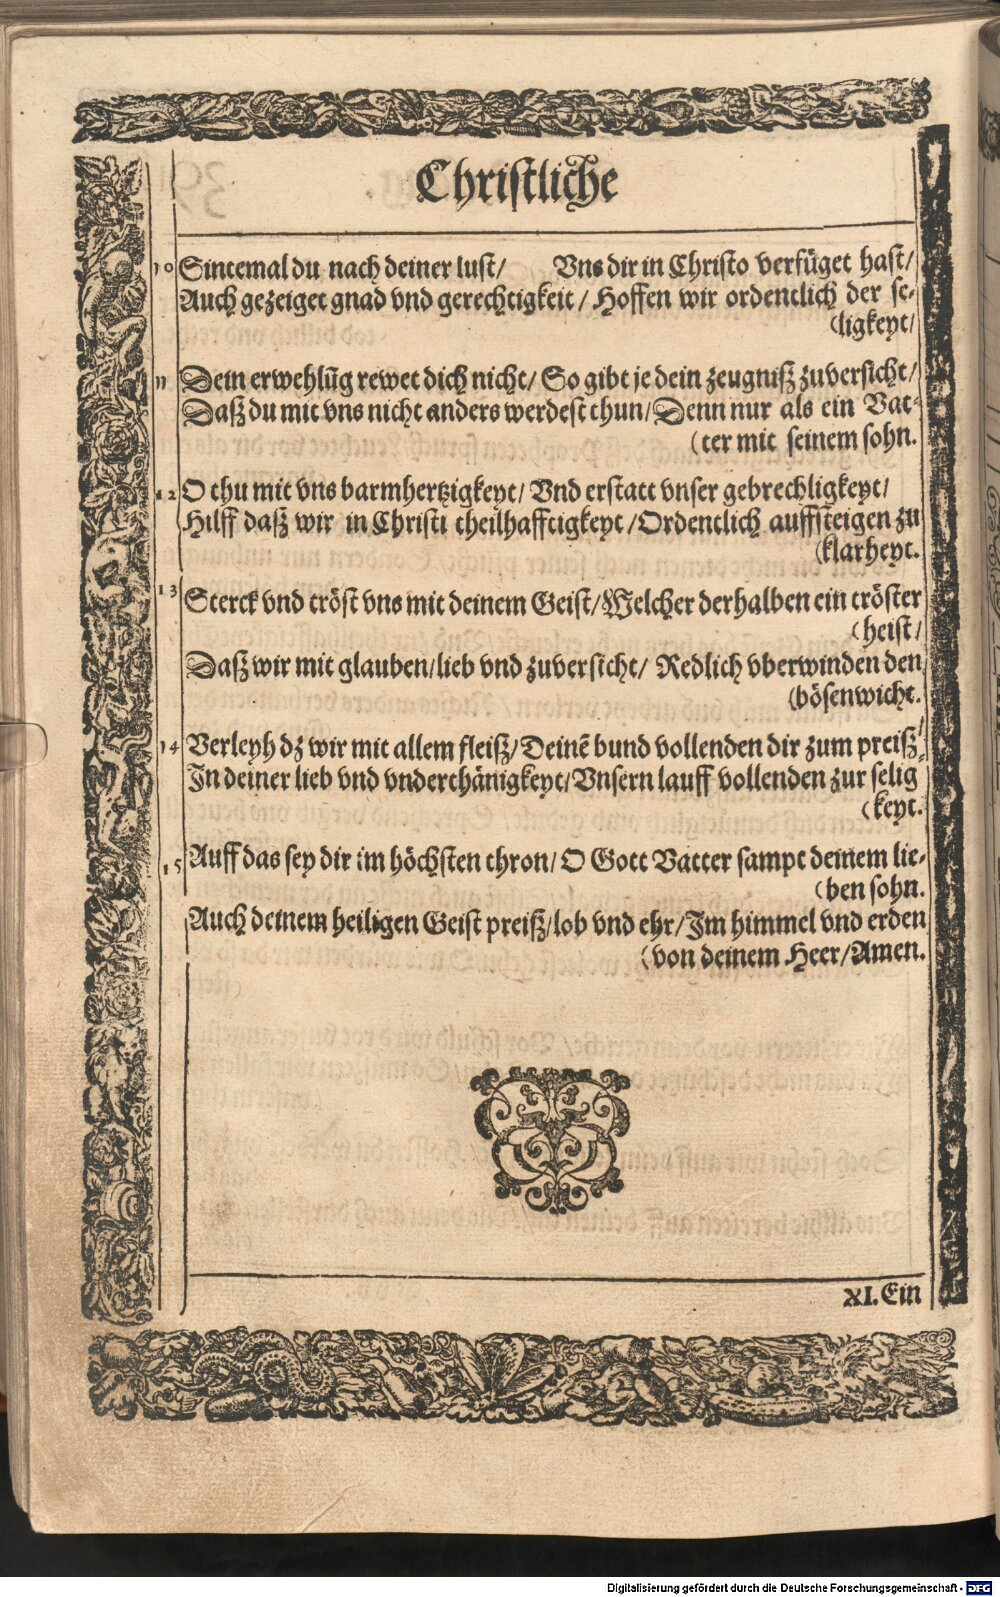 Christliche
10 Sintemal du nach deiner lust/ Vns dir in Christo verfüget hast/
Auch gezeiget gnad vnd gerechtigkeit/ Hoffen wir ordentlich der se-
(ligkeyt/
11 Dein erwehlūg rewet dich nicht/ So gibt je dein zeugniß zuversicht/
Daß du mit vns nicht anders werdest thun/ Denn nur als ein Vat-
(ter mit seinem sohn.
12 O thu mit vns barmhertzigkeyt/ Vnd erstatt vnser gebrechligkeyt/
Hilff daß wir in Christi theilhafftigkeyt/ Ordentlich auffsteigen zu
(klarheyt.
13 Sterck vnd tröst vns mit deinem Geist/ Welcher derhalben ein tröster
(heist/
Daß wir mit glauben/ lieb vnd zuversicht/ Redlich vberwinden den
(bösenwicht.
14 Verleyh dz wir mit allem fleiß/ Deinē bund vollenden dir zum preiß/
In deiner lieb vnd vnderthänigkeyt/ Vnsern lauff vollenden zur selig-
(keyt.
15 Auff das sey dir im höchsten thron/ O Gott Vatter sampt deinem lie-
(ben sohn.
Auch deinem heiligen Geist preiß/ lob vnd ehr/ Im himmel vnd erden
(von deinem Heer/ Amen.
XI. Ein
Digitalisierung gefördert durch die Deutsche Forschungsgemeinschaft - DFG